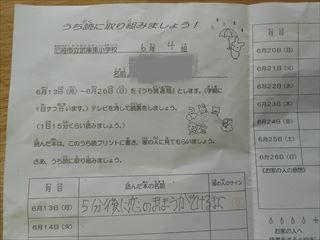 うち読に取り組みましょう！
尼崎市立武庫東小学校　6年4組
名前
6月13日（月）～6月26日（日）を「うち読週間」とします。（学期に
1回ずつ行います。）テレビを消して読書をしましょう。
（1日15分くらい読みましょう。）
読んだ本は、このうち読プリントに書き、家の人に見てもらいましょう。
さあ、うち読に取り組みましょう。
月日　読んだ本の名前　家の人のサイン
6月13日（月）　5分後に恋のまほうがとけるまえに
6月14日（火）
月日
6月20日（月）
6月21日（火）
6月22日（水）
6月23日（木）
6月24日（金）
6月25日（土）
6月26日（日）
《お家の人の感想》
お家の人へ